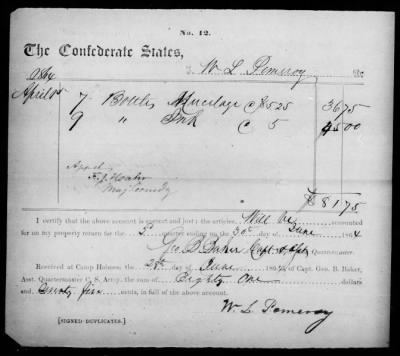 No. 12.
The Confederate States,
To W L Pemeroy Dr.
1864
April 7 Bottles Mucilage @ $5.25 36 75
9 " Ink @ 5 45 00
Appd
Maj Comdg
$ 81.75
I certify that the above account is correct and just; the articles Will be accounted
for on my property return for the 2d quarter ending on the 30th day of June 1864
Geo B Baker Capt & A Quartermaster.
Received at Camp Holmes the 28th day of June 1864, of Capt. Geo. B. Baker,
Asst. Quartermaster C. S. Army, the sum of Eighty One dollars
and Seventy five cents, in full of the above account.
W. L. Pemeroy
[SIGNED DUPLICATES.]